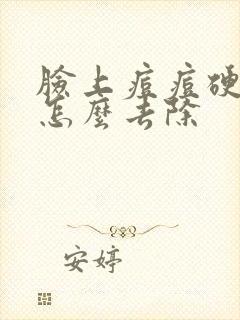 臉上痘痘硬
怎麼去除
安婷